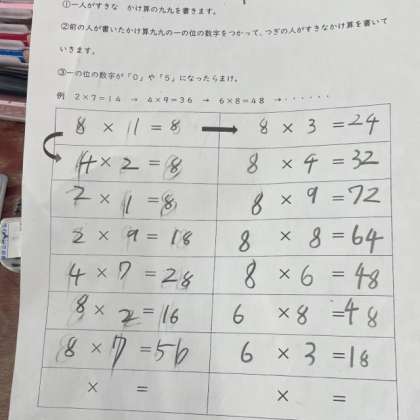 ①一人がすきな かけ算の九九を書きます。
②前の人が書いたかけ算九九の一の位の数字をつかって、つぎの人がすきなかけ算を書いて
いきます。
③一の位の数字が「0」や「5」になったらまけ。
例 2×7=14 → 4×9=36 → 6×8=48 →・・・・・・
8 × 11 = 8 → 8 × 3 = 24
4 × 2 = 8 8 × 4 = 32
2 × 1 = 8 8 × 9 = 72
2 × 9 = 18 8 × 8 = 64
4 × 7 = 28 8 × 6 = 48
8 × 2 = 16 6 × 8 = 48
8 × 7 = 56 6 × 3 = 18
× = × =